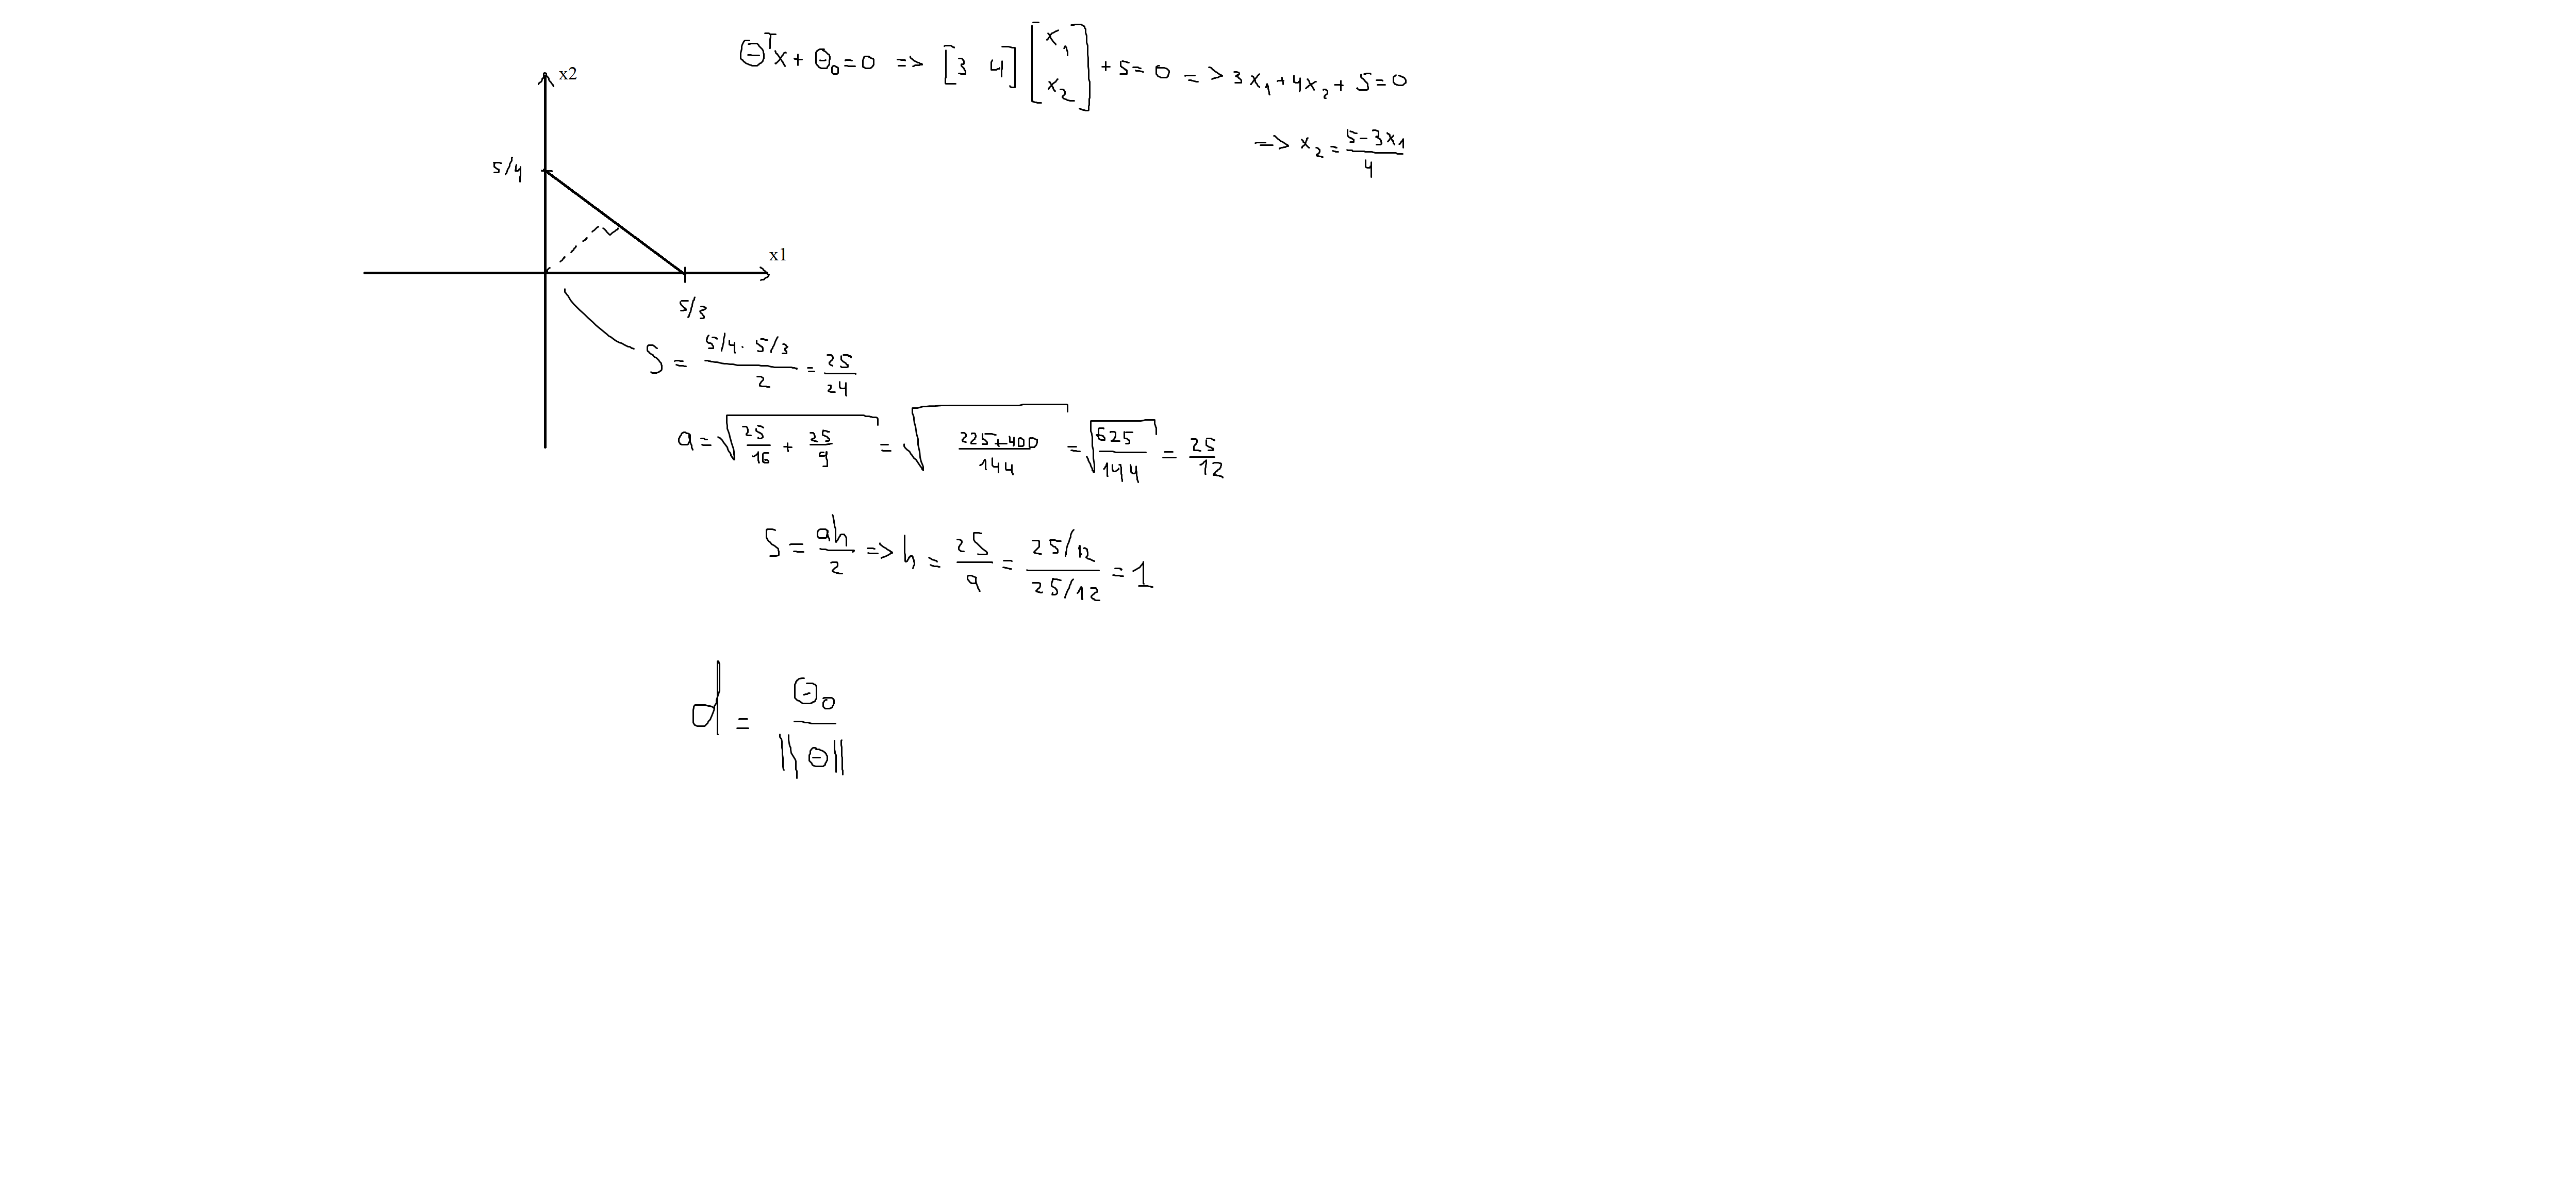 Θᵀx + θ₀ = 0 => [3 4] [x₁ x₂] + 5 = 0 => 3x₁ + 4x₂ + 5 = 0
=> x₂ = (5-3x₁)/4
x2
5/4
x1
5/3
S = (5/4 · 5/3)/2 = 25/24
a = √(25/16 + 25/9) = √((225+400)/144) = √(625/144) = 25/12
S = ah/2 => h = 2S/a = (25/12)/(25/12) = 1
d = Θ₀/||Θ||